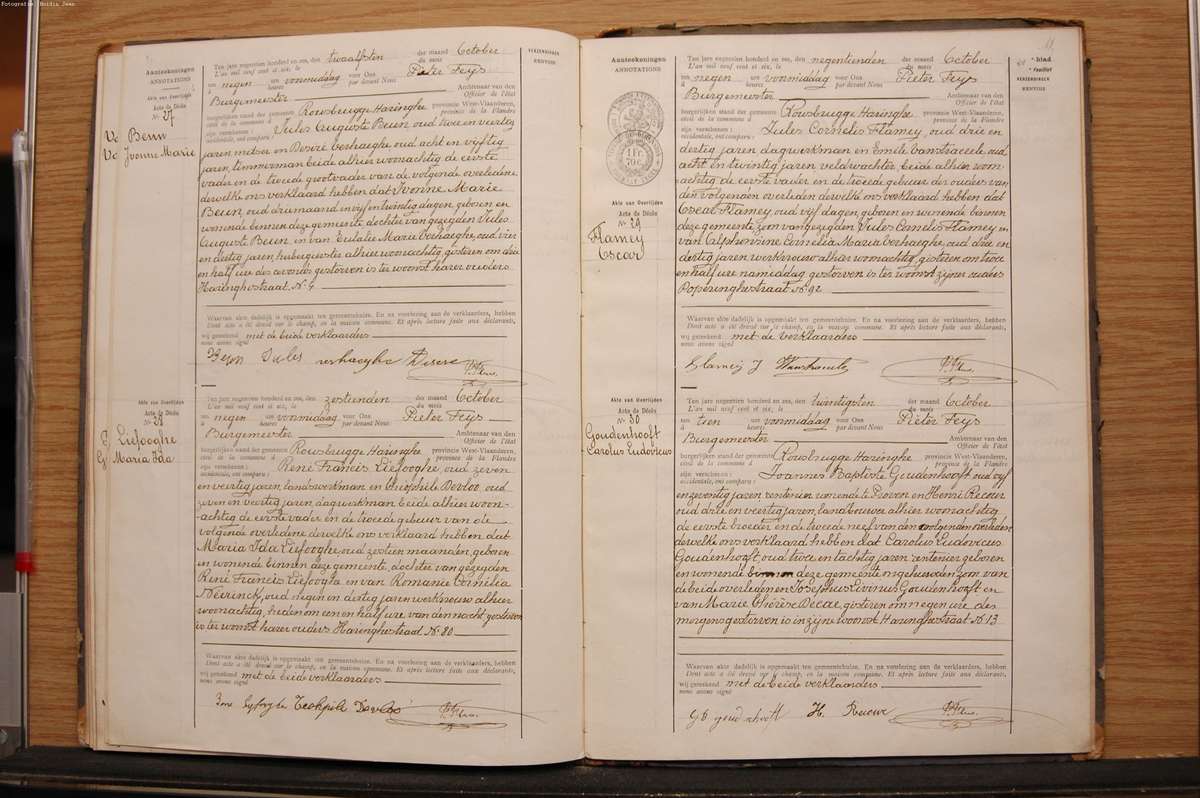 Fotografie: Boidin Jean
Aanteekeningen
ANNOTATIONS
Akte van Overlijden
Acte de Décès
Nr. 27
Beun
Yvonne Marie
VERZENDINGEN
RENVOIS
Ten jare negentien honderd en zes, den twaalfsten der maand October
L'an mil neuf cent et six, le du mois
ten negen ure voormiddag voor Ons Pieter Feys
à heures par devant Nous
Burgemeester Ambtenaar van den
Officier de l'état
burgerlijken stand der gemeente Rousbrugge Haringhe provincie West-Vlaanderen,
civil de la commune d province de la Flandre
zijn verschenen: Jules Auguste Beun, oud twee en veertig
occidentale, ont comparu:
jaren, metser en Desiré Verhaeghe oud acht en vijftig
jaren, timmerman beide alhier woonachtig de eerste
vader en de tweede grootvader van de volgende overledene
dewelke ons verklaard hebben dat Yvonne Marie
Beun, oud drij maand en vijf en twintig dagen, geboren en
wonende binnen deze gemeente dochter van gezegden Jules
Auguste Beun, en van Eulalie Maria Verhaeghe, oud vier
en dertig jaren, herbergierster alhier woonachtig, gisteren om drie
en half ure des avonds gestorven is ter woonst harer ouders
Haringhestraat Nr. 4
Waarvan akte dadelijk is opgemaakt ten gemeentehuize. En na voorlezing aan de verklaarders, hebben
Dont acte a été dressé sur le champ, en la maison commune. Et après lecture faite aux déclarants,
wij geteekend met de beide verklaarders
nous avons signé
Beun Jules Verhaeghe Desiré P. Feys
Akte van Overlijden
Acte de Décès
Nr. 28
Liefooghe
Maria Ida
Ten jare negentien honderd en zes, den zestienden der maand October
L'an mil neuf cent et six, le du mois
ten negen ure voormiddag voor Ons Pieter Feys
à heures par devant Nous
Burgemeester Ambtenaar van den
Officier de l'état
burgerlijken stand der gemeente Rousbrugge Haringhe provincie West-Vlaanderen,
civil de la commune d province de la Flandre
zijn verschenen: René Francis Liefooghe, oud zeven
occidentale, ont comparu:
en veertig jaren, landswerkman en Théophile Devloo, oud
zeven en veertig jaren, dagwerkman beide alhier woon-
achtig de eerste vader en de tweede gebuer van de
volgende overledene dewelke ons verklaard hebben dat
Maria Ida Liefooghe, oud zestien maanden, geboren
en wonende binnen deze gemeente, dochter van gezegden
René Francis Liefooghe en van Romanie Cornélia
Deerinck, oud negen en dertig jaren werkvrouw alhier
woonachtig, heden om een en half ure van den nacht gestorven
is ter woonst harer ouders Haringhestraat Nr. 80
Waarvan akte dadelijk is opgemaakt ten gemeentehuize. En na voorlezing aan de verklaarders, hebben
Dont acte a été dressé sur le champ, en la maison commune. Et après lecture faite aux déclarants,
wij geteekend met de beide verklaarders
nous avons signé
Devloo P. Feys
Aanteekeningen
ANNOTATIONS
1 Fr.
70 c.
Akte van Overlijden
Acte de Décès
Nr. 29
Flamey
Oscar
blad
feuillet
VERZENDINGEN
RENVOIS
Ten jare negentien honderd en zes, den negentienden der maand October
L'an mil neuf cent et six, le du mois
ten negen ure voormiddag voor Ons Pieter Feys
à heures par devant Nous
Burgemeester Ambtenaar van den
Officier de l'état
burgerlijken stand der gemeente Rousbrugge Haringhe provincie West-Vlaanderen,
civil de la commune d province de la Flandre
zijn verschenen: Jules Cornelis Flamey, oud drie en
occidentale, ont comparu:
dertig jaren dagwerkman en Emile Vanstraceele oud
acht en twintig jaren veldwachter beide alhier woon-
achtig de eerste vader en de tweede gebuer der ouders van
den volgenden overleden dewelke ons verklaard hebben dat
Oscar Flamey, oud vijf dagen, geboren en wonende binnen
deze gemeente zoon van gezegden Jules Cornelis Flamey en
van Alphonsine Cornelia Maria Verhaeghe, oud drie en
dertig jaren werkvrouw alhier woonachtig, gisteren om twee
en half ure namiddag gestorven is ter woonst zijner ouders
Poperinghestraat Nr. 92
Waarvan akte dadelijk is opgemaakt ten gemeentehuize. En na voorlezing aan de verklaarders, hebben
Dont acte a été dressé sur le champ, en la maison commune. Et après lecture faite aux déclarants,
wij geteekend met de verklaarders
nous avons signé
Flameij J P. Feys
Akte van Overlijden
Acte de Décès
Nr. 30
Goudenhooft
Carolus Ludovicus
Ten jare negentien honderd en zes, den twintigsten der maand October
L'an mil neuf cent et six, le du mois
ten tien ure voormiddag voor Ons Pieter Feys
à heures par devant Nous
Burgemeester Ambtenaar van den
Officier de l'état
burgerlijken stand der gemeente Rousbrugge Haringhe provincie West-Vlaanderen,
civil de la commune d province de la Flandre
zijn verschenen: Joannes Baptiste Goudenhooft oud vijf
occidentale, ont comparu:
en zeventig jaren rentenier wonende te Proven en Henri Recour
oud drie en veertig jaren, landbouwer alhier woonachtig
de eerste broeder en de tweede neef van den volgenden overleden
dewelke ons verklaard hebben dat Carolus Ludovicus
Goudenhooft, oud twee en tachtig jaren rentenier geboren
en wonende binnen deze gemeente ongehuwden zoon van
de beide overledenen Josephus Livinus Goudenhooft en
van Marie Thérèse Decae, gisteren om negen ure des
morgens gestorven is in zijne woonst Haringhestraat Nr. 13
Waarvan akte dadelijk is opgemaakt ten gemeentehuize. En na voorlezing aan de verklaarders, hebben
Dont acte a été dressé sur le champ, en la maison commune. Et après lecture faite aux déclarants,
wij geteekend met de beide verklaarders
nous avons signé
H. Recour P. Feys